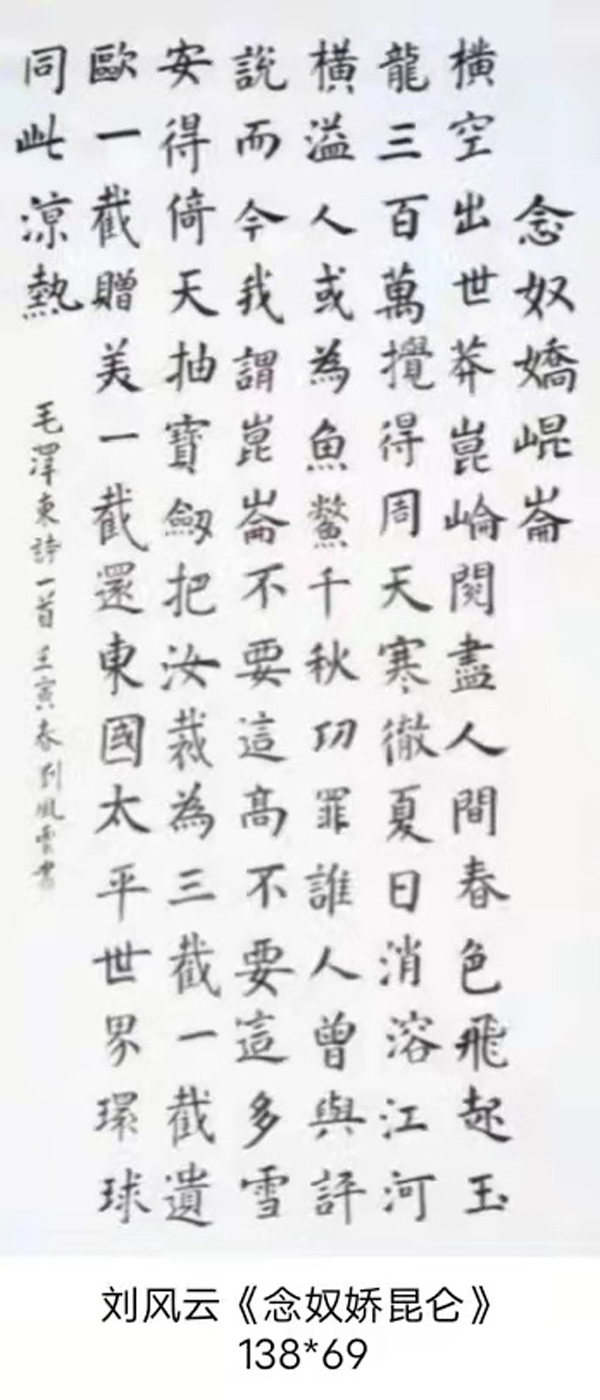 念奴嬌崐崙
橫空出世莽崑崘閱盡人間春色飛起玉
龍三百萬攪得周天寒徹夏日消溶江河
橫溢人或為魚鱉千秋功罪誰人曾與評
說而今我謂崑崙不要這高不要這多雪
安得倚天抽寶劍把汝裁為三截一截遺
歐一截贈美一截還東國太平世界環球
同此涼熱
毛澤東詩一首壬寅春刘風雲書
刘风云《念奴娇昆仑》
138*69